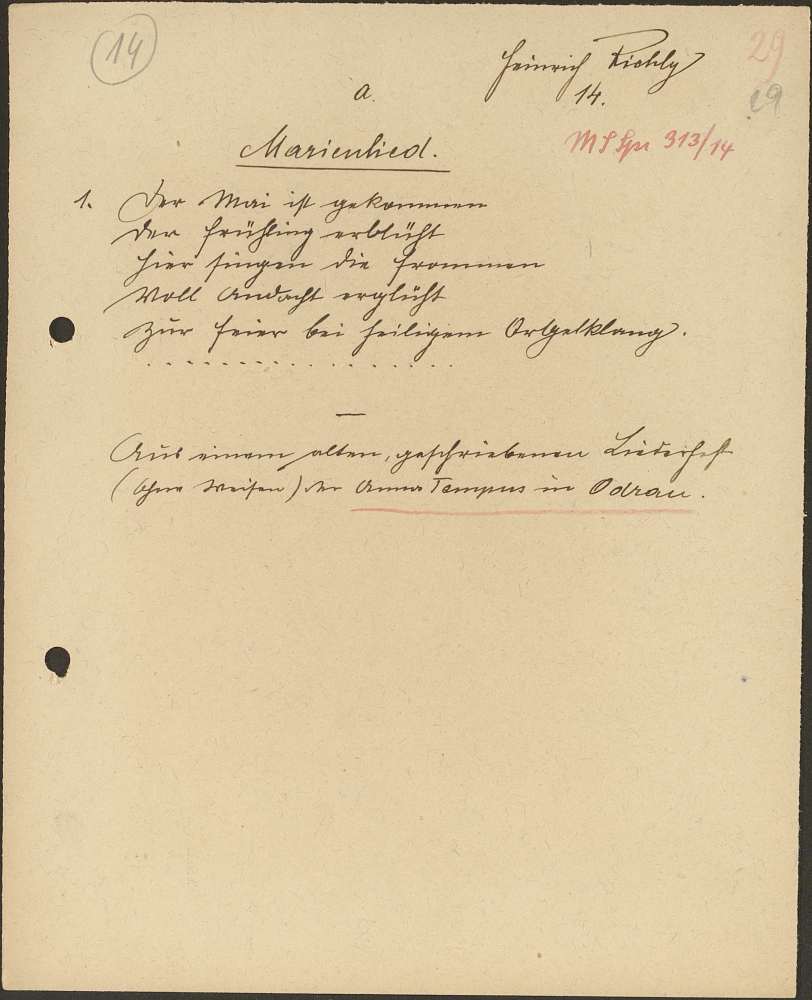 14
Heinrich Richly
29
14.
29
a.
Marienlied.
313/14
1. Der Mai ist gekommen
Der Frühling erblüht
Hier singen die Frommen
Voll Andacht erglüht
Zur Feier bei heiligem Orgelklang.
. . . . . . . . . . . . . . . .
—
Aus einem alten, geschriebenen Liederheft
(ohne Weisen) der Anna Tempus in Odrau.